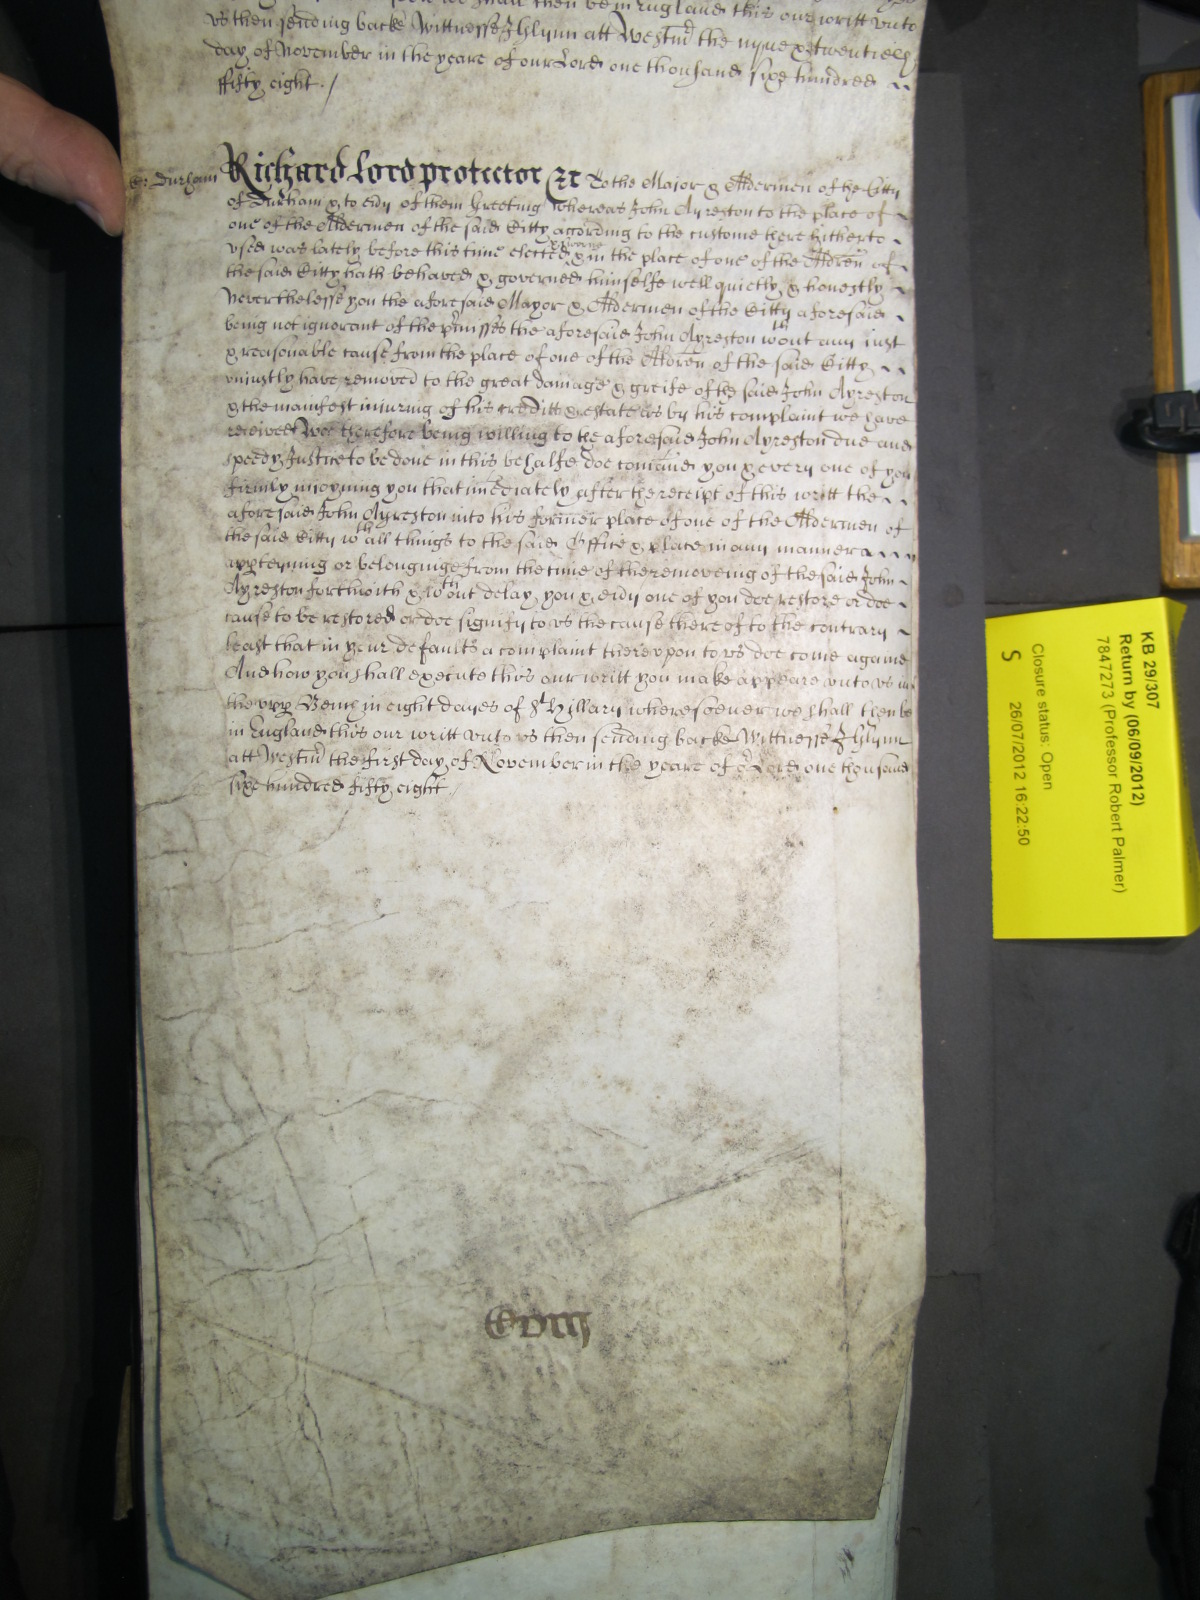 shall then be in England this our writt unto
us then sending backe Wittnesse J Glynn att Westmr the nyne & twentieth
day of November in the yeare of our Lord one thousand six hundred
ffifty eight ./
Ci: Durham
Richard Lord protector &c To the Major & Aldermen of the Citty
of Durham & to evy of them Greeting Whereas John Ayreston to the place of
one of the Aldermen of the said Citty according to the custome there hitherto
used was lately before this time elected & sworne & in the place of one of the Alдren of
the said Citty hath behaved & governed himselfe well quietly & honestly
Neverthelesse you the aforesaid Mayor & Aldermen of the Citty aforesaid
being not ignorant of the pmisses the aforesaid John Ayreston wthout any just
& reasonable cause from the place of one of the Aldren of the said Citty
uniustly have removed to the great damage & greife of the said John Ayreston
& the manifest iniuring of his creditt & estate as by his complaint we have
received Wee therefore being willing to the aforesaid John Ayreston due and
speedy Justice to be done in this behalfe doe comand you & every one of you
firmly inioyning you that imediately after the receipt of this writt the
aforesaid John Ayreston into his former place of one of the Aldermen of
the said Citty wth all things to the said Office & place in any manner
apperteining or belonginge from the time of the removeing of the said John
Ayreston forthwith & wthout delay you & evy one of you doe restore or doe
cause to be restored or doe signify to us the cause there of to the contrary
least that in your defaults a complaint thereupon to us doe come againe
And how you shall execute this our writt you make appeare unto us in
the upp Bench in eight dayes of St Hillary wheresoever we shall then be
in England this our writt unto us then sending backe Wittnesse J Glynn
att Westmr the first day of November in the yeare of or Lord one thousand
sixe hundred fifty eight ./
KB 29/307
Return by (06/09/2012)
7847273 (Professor Robert Palmer)
Closure status: Open
S 26/07/2012 16:22:50